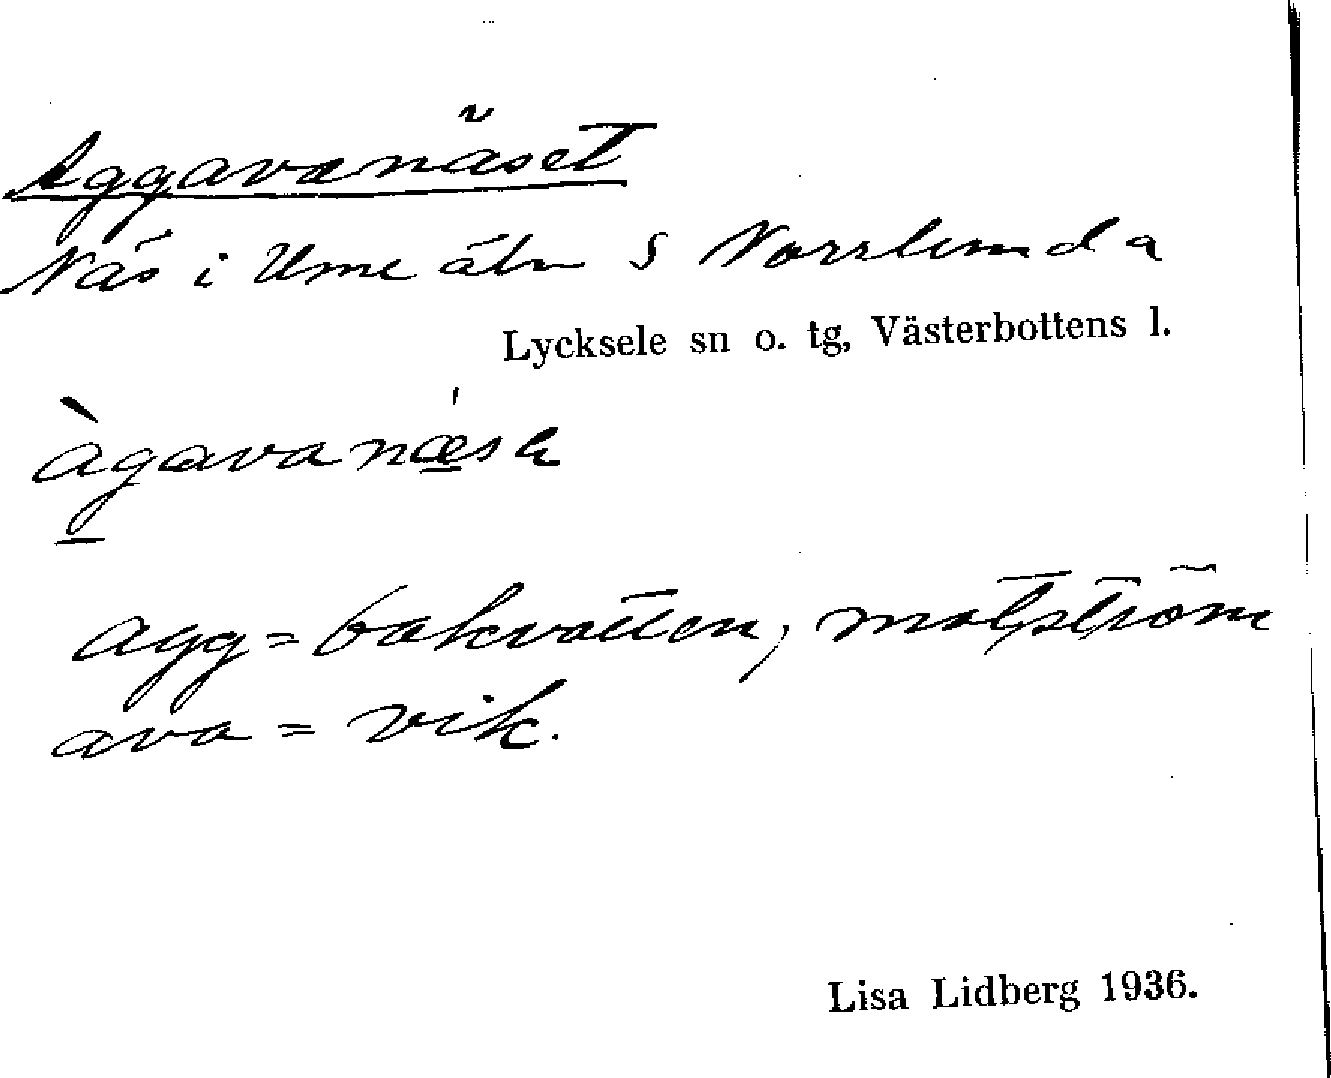 Aggavanäset
Näs i Ume älv S Norrlunda
Lycksele sn o. tg, Västerbottens l.
àgavanæ̱sə
agg = bakvatten, motström
ava = vik.
Lisa Lidberg 1936.